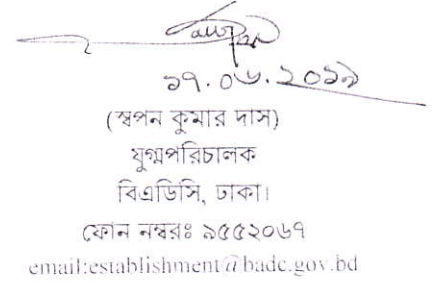 ১৭.০৬.২০১৯
(স্বপন কুমার দাস)
যুগ্মপরিচালক
বিএডিসি, ঢাকা।
ফোন নম্বরঃ ৯৫৫২০৬৭
email:establishment@badc.gov.bd